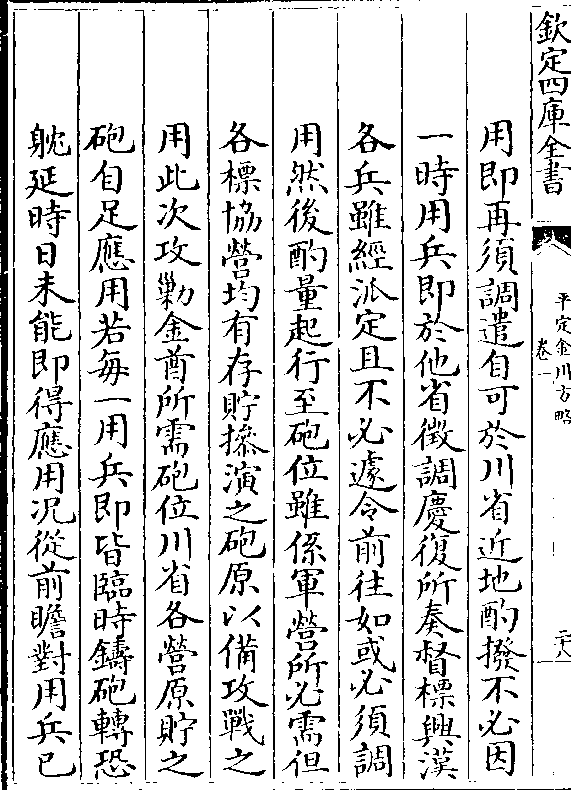 欽定四庫全書
平定金川方略
卷一
二十八
用即再須調遣自可於川省近地酌撥不必因
一時用兵即於他省徵調慶復所奏督標興漢
各兵雖經派定且不必遽令前往如或必須調
用然後酌量起行至砲位雖係軍營所必需但
各標協營均有存貯操演之砲原以備攻戰之
用此次攻勦金酋所需砲位川省各營原貯之
砲自足應用若每一用兵即皆臨時鑄砲轉恐
躭延時日未能即得應用况從前瞻對用兵已